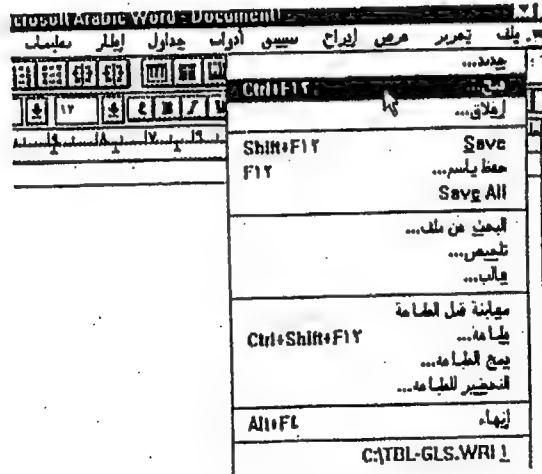 crosoft Arabic Word - Document1
ملف تحرير عرض إدراج تنسيق أدوات جداول إطار تعليمات
جديد...
فتح... Ctrl+F١٢
إغلاق...
Save Shift+F١٢
حفظ باسم... F١٢
Save All
البحث عن ملف...
تلخيص...
قالب...
معاينة قبل الطباعة
طباعة... Ctrl+Shift+F١٢
دمج الطباعة...
التحضير للطباعة...
إنهاء Alt+F٤
١ C:\TBL-GLS.WRI
١٢